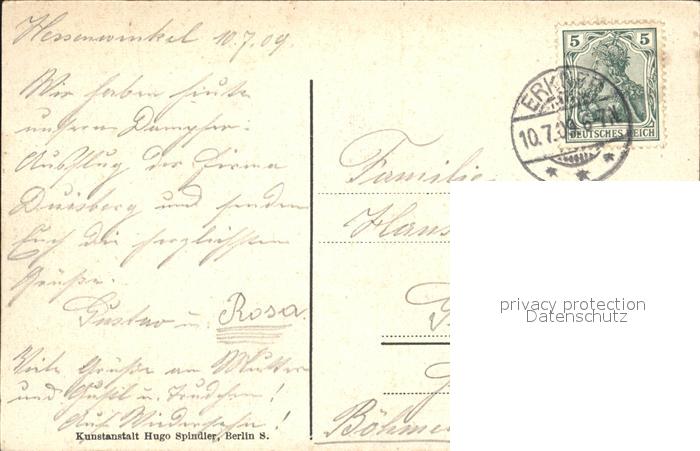 Hessenwinkel 10.7.09.
Wir haben heute
unseren Dampfer-
Ausflug der Firma
Duisberg und senden
Euch die herzlichsten
Grüße.
Gustav u. Rosa.
Viele Grüße an Mutter
und Gustl u. Trudchen!
Auf Wiedersehn!
Kunstanstalt Hugo Spindler, Berlin S.
5 5
DEUTSCHES REICH
ERKNER
10.7.09
Familie
Hans
Böhmen
privacy protection
Datenschutz